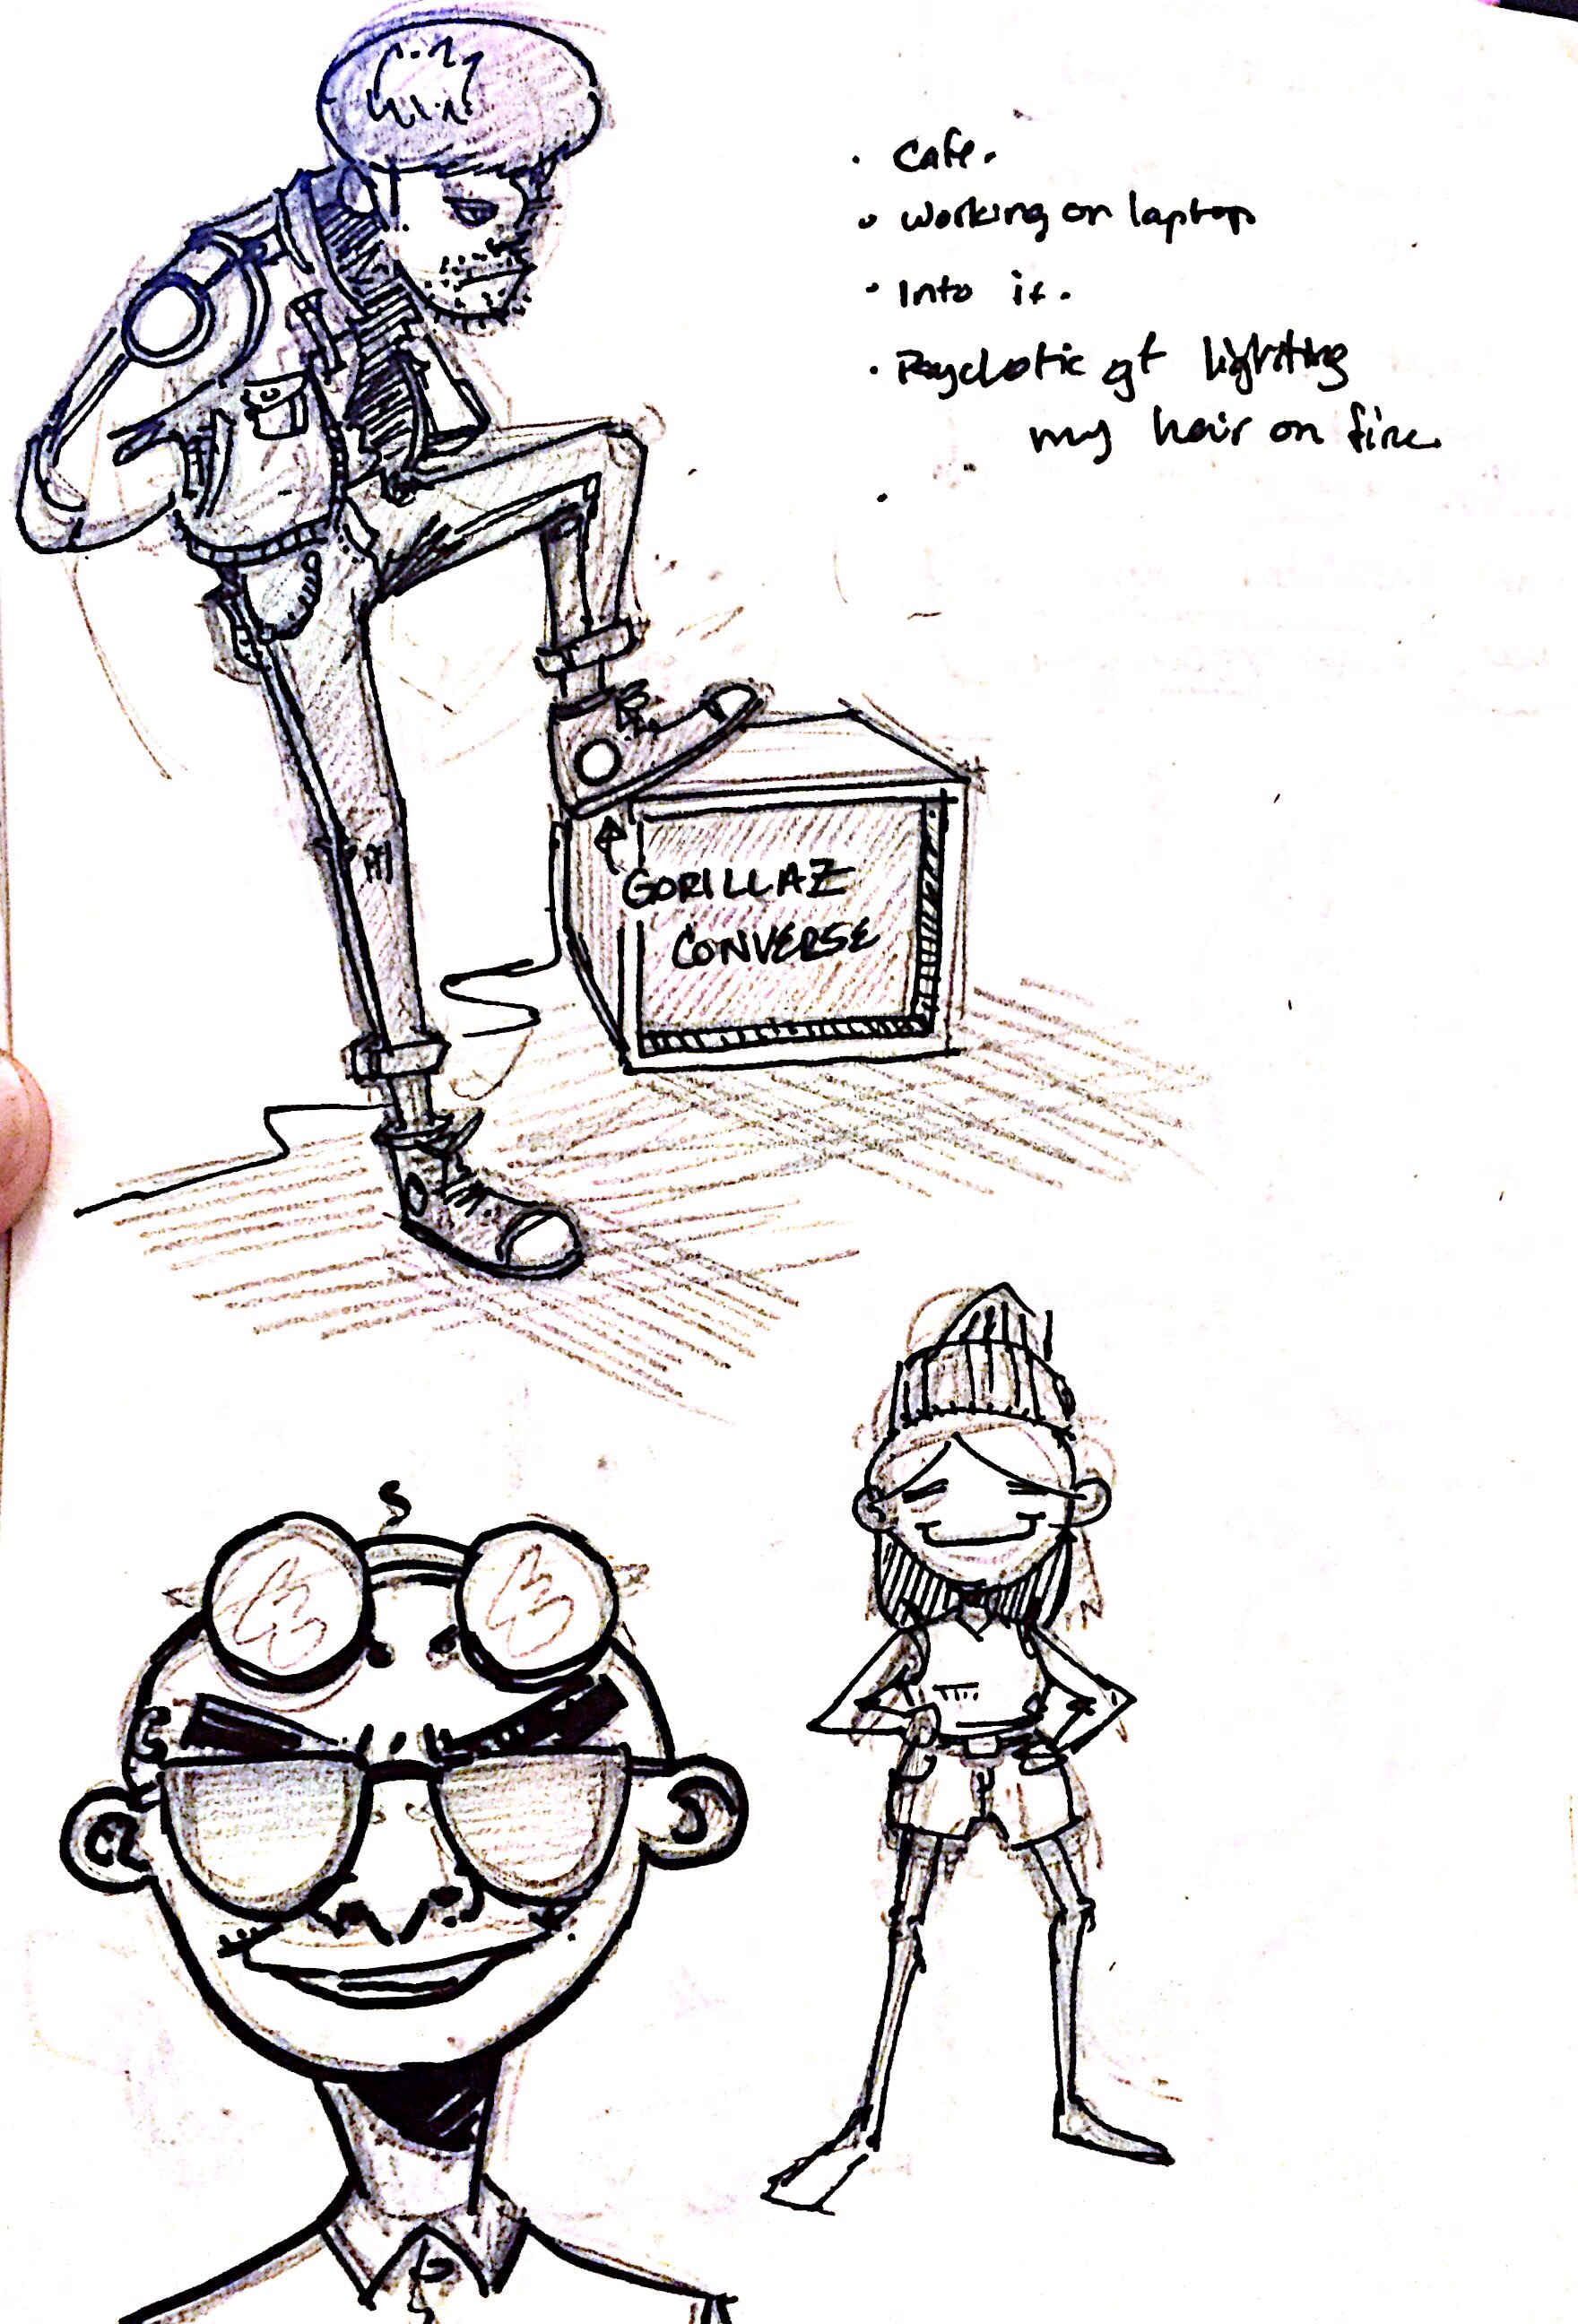 · Cafe.
· Working on laptop
· Into it.
· Psychotic gf lighting
my hair on fire.
·
GORILLAZ
CONVERSE